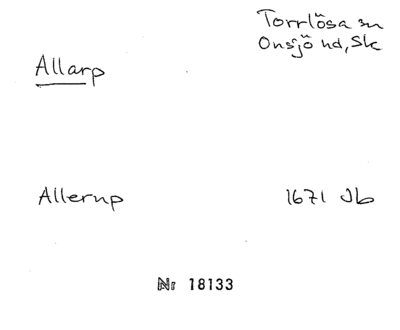 Torrlösa sn
Onsjö hd, Sk
Allarp
Allerup 1671 Jb
Nr 18133